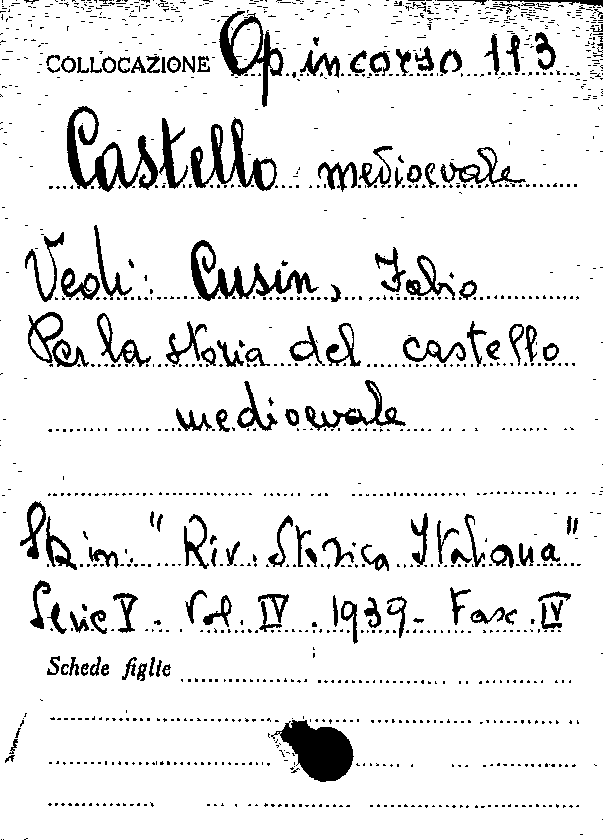 COLLOCAZIONE Op. in corso 113
Castello medioevale
Vedi: Cusin, Fabio
Per la storia del castello
medioevale
in: "Riv. Storica Italiana"
Serie V. Vol. IV. 1939- Fasc. IV
Schede figlie